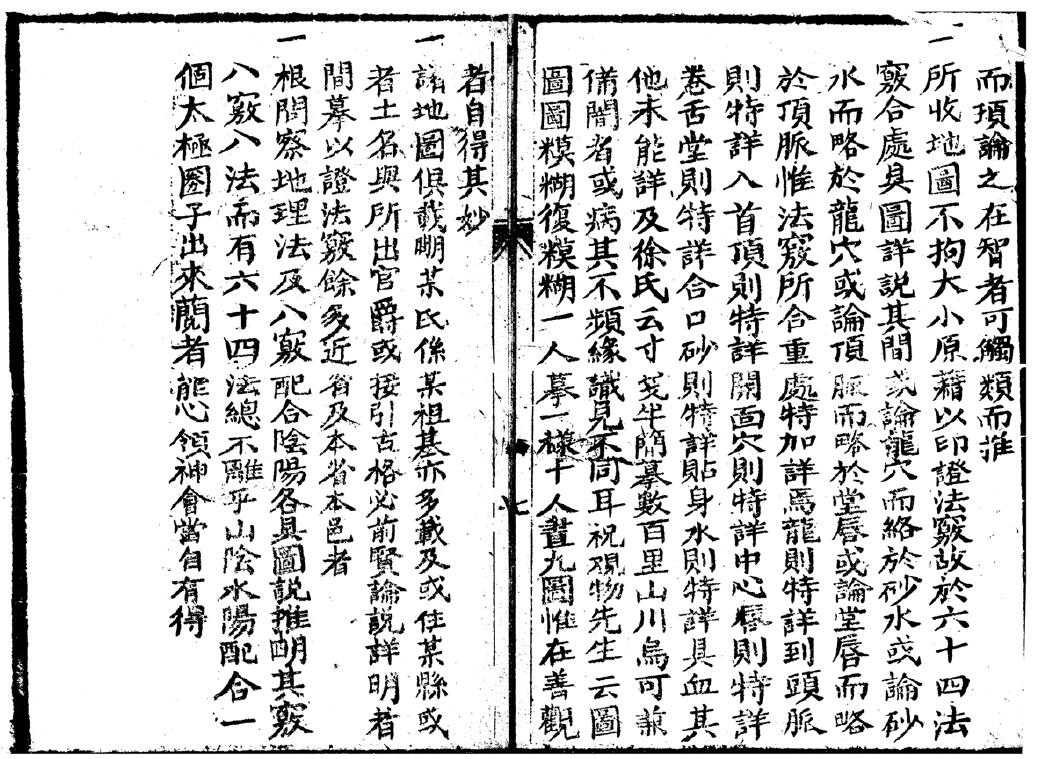 而項論之在智者可觸類而推
一所收地圖不拘大小原藉以印證法竅故於六十四法
竅合處具圖詳說其間或論龍穴而絡於砂水或論砂
水而略於龍穴或論頂脈而略於堂唇或論堂唇而略
於頂脈惟法竅所合重處特加詳焉龍則特詳到頭脈
則特詳入首頂則特詳開面穴則特詳中心唇則特詳
卷舌堂則特詳合口砂則特詳貼身水則特詳具血其
他未能詳及徐氏云寸箋半簡摹數百里山川烏可兼
備閱者或病其不頻緣識見不同耳祝賜物先生云圖
圖圖糢糊復糢糊一人摹一樣十人畫九圖惟在善觀
者自得其妙
一諸地圖俱載明某氏係某祖基亦多載及或住某縣或
者土名與所出官爵或接引古格必前賢論說詳明者
間摹以證法竅餘多近省及本省本邑者
一根閱察地理法及八竅配合陰陽各具圖說推明其竅
八竅八法而有六十四法總不離乎山陰水陽配合一
個太極圈子出來閱者能心領神會當自有得
七